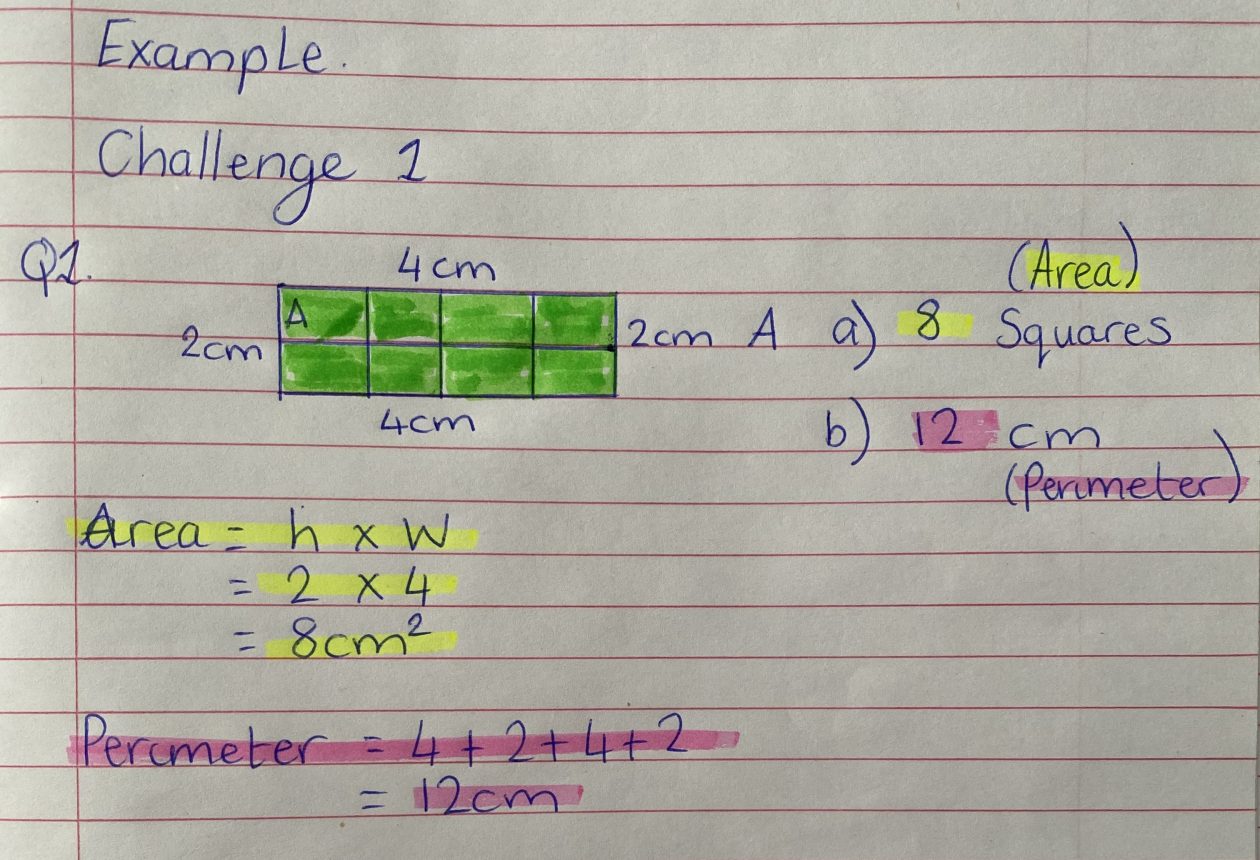 Example.
Challenge 1
Q1.
4cm
(Area)
A
2cm
2cm A a) 8 Squares
4cm
b) 12 cm
(Perimeter)
Area = h x W
= 2 x 4
= 8cm²
Perimeter = 4 + 2 + 4 + 2
= 12cm